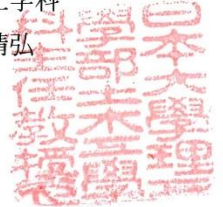 工学科
靖弘
日本大學理工
學部土木工學
科主任教授